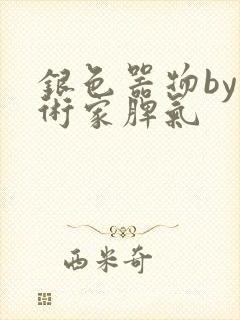 銀色器物by
術家脾氣
西米奇